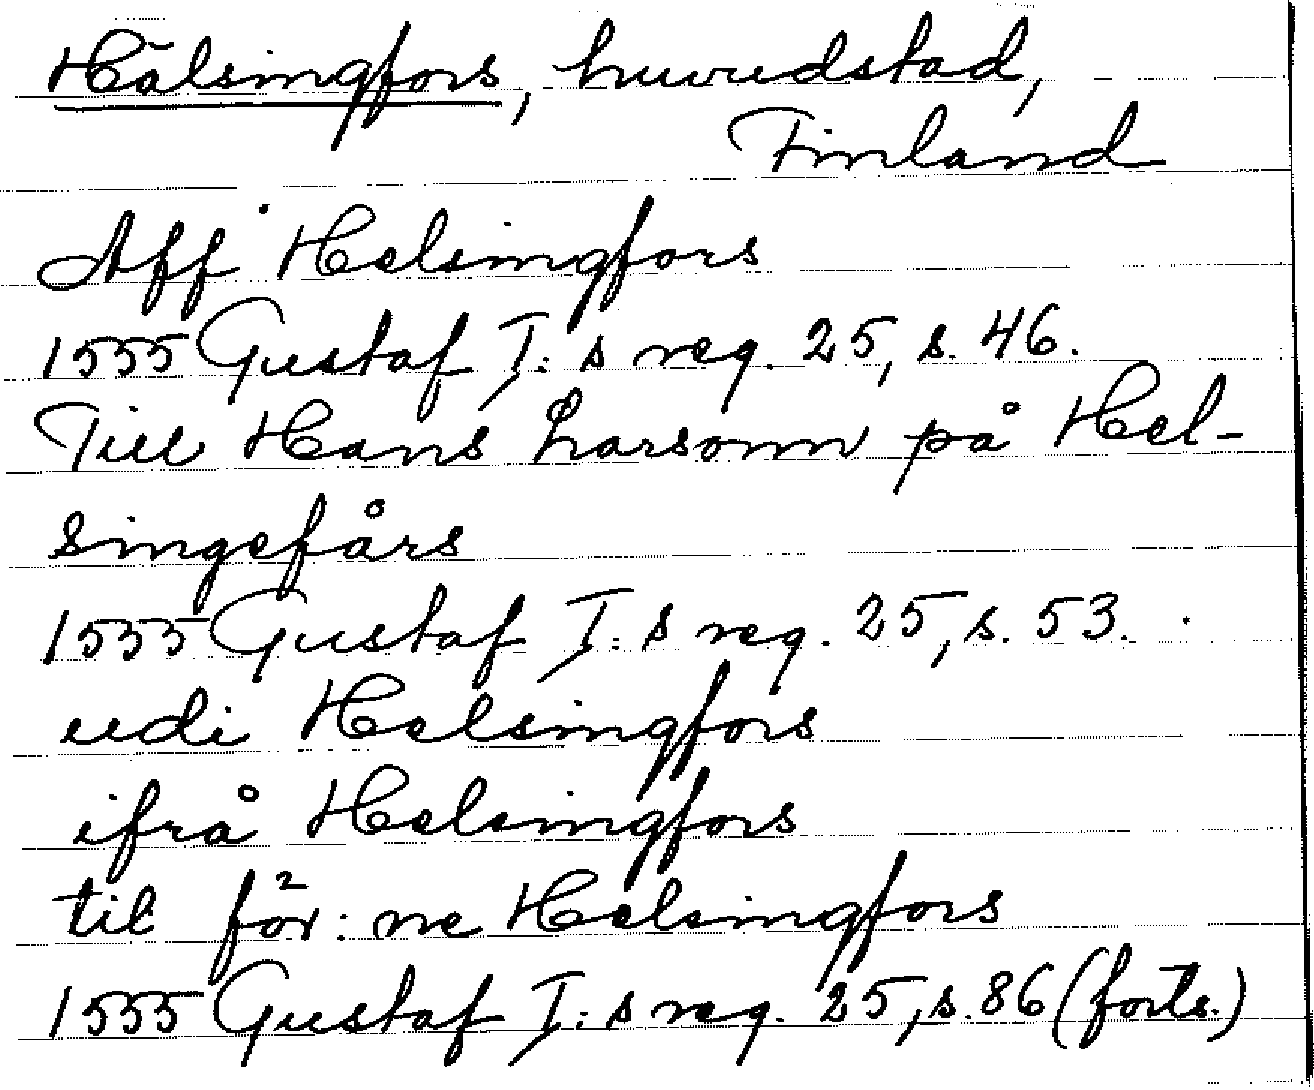 Hälsingfors, huvudstad,
Finland
Aff Helsingfors
1555 Gustaf I:s reg. 25, s. 46.
Till Hans Larsonn på Hel-
singefårs
1555 Gustaf I:s reg. 25, s. 53.
udi Helsingfors
ifrå Helsingfors
til för:ne Helsingfors
1555 Gustaf I:s reg. 25, s. 86 (forts.)